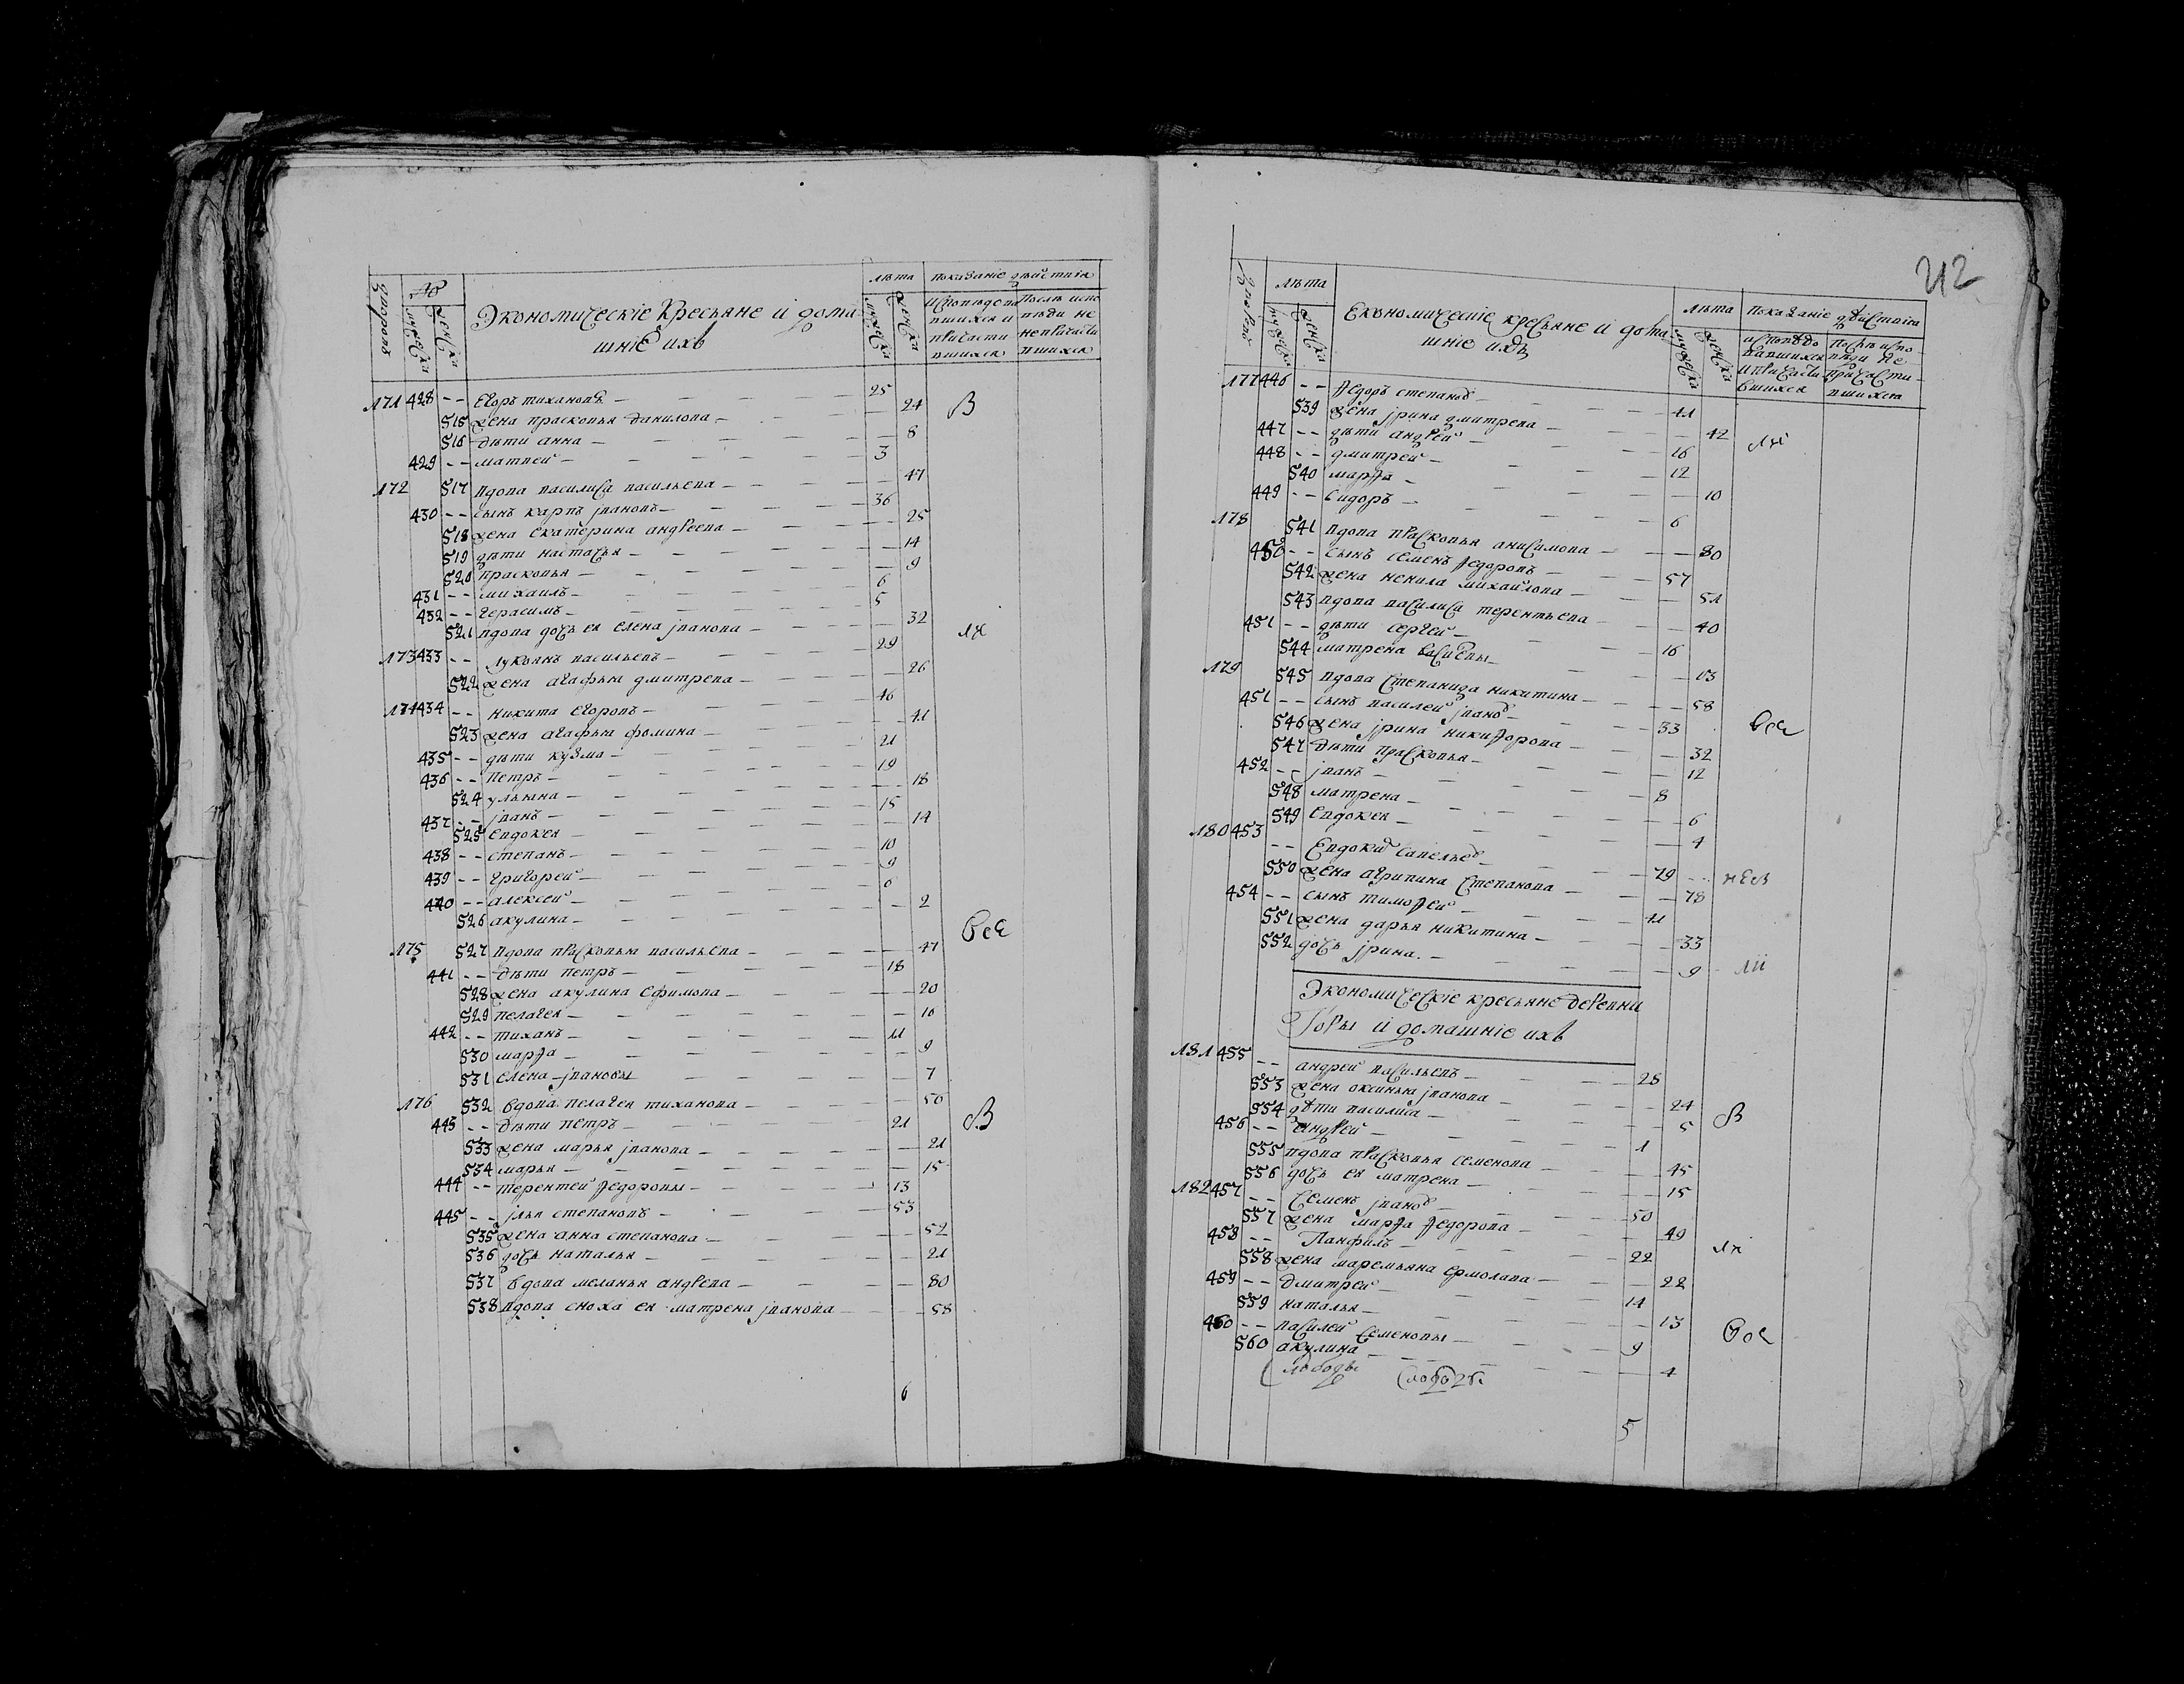 дворовъ № лѣта показаніе дѣйствія
мужеска женска Экономическіе крестьяне и домашніе ихъ мужеска женска исповѣдопавшихся и причастившихся после исповѣди не причастившихся
171 428 -- Егоръ тихановъ 25
515 жена прасковья данилова 24 В
516 дѣти анна 8
429 -- матвей 3
172 517 вдова василиса васильева 47
430 -- сынъ карпъ jвановъ 36
518 жена екатерина андреева 25
519 дѣти настасья 14
520 прасковья 9
431 -- михаилъ 6
432 -- герасимъ 5
521 вдова дочь ея елена jванова 32
173 433 -- лукоянъ васильевъ 29
522 жена агафья дмитрева 26
174 434 -- никита егоровъ 46
523 жена агафья фомина 41
435 -- дѣти кузма 21
436 -- петръ 19
524 ульяна 18
437 -- jванъ 15
525 евдокея 14
438 -- степанъ 10
439 -- григорей 9
440 -- алексей 6
526 акулина 2
175 527 вдова прасковья васильева 47 все
441 -- дѣти петръ 18
528 жена акулина ефимова 20
529 пелагея 16
442 -- тиханъ 11
530 марѳа 9
531 елена jвановы 7
176 532 вдова пелагея тиханова 50
443 -- дѣти петръ 21 В
533 жена марья jванова 21
534 марья 15
444 -- терентей ѳедоровы 13
445 -- jлья степановъ 53
535 жена анна степанова 52
536 дочь наталья 21
537 вдова меланья андрева 80
538 вдова сноха ея матрена jванова 58
6
212
дворовъ лѣта лѣта показаніе дѣйствіа
мужеска женска Економическіе крестьяне и домашніе ихъ мужеска женска исповѣдовавшихся и причастившихся посль исповѣди не причастившихся
177 446 -- ѳедоръ степановъ 41
539 жена jрина дмитрева 42
447 -- дѣти андрей 16
448 -- дмитрей 12
540 марѳа 10
449 -- сидоръ 6
178 541 вдова прасковья анисимова 80
450 -- сынъ семенъ ѳедоровъ 57
542 жена ненила михайлова 51
543 вдова василиса терентьева 40
451 -- дѣти сергей 16
544 матрена 13
179 545 вдова степанида никитина 58
451 -- сынъ василей jвановъ 33 все
546 жена jрина никиѳорова 32
547 дѣти прасковья 12
452 -- jванъ 8
548 матрена 6
549 евдокея 4
180 453 -- Евдоким савельевъ 79
550 жена агрипина степанова 78
454 -- сынъ тимоѳей 41
551 жена дарья никитина 33
552 дочь jрина. 9
Экономическіе крестьяне деревни
Горы и домашніе ихъ
181 455 -- андрей васильевъ 28
553 жена оксинья jванова 24
554 дѣти василиса 5 В
456 -- андрей 1
555 вдова прасковья семенова 45
556 дочь ея матрена 15
182 457 -- Семенъ jвановъ 50
557 жена марѳа ѳедорова 49
458 -- Панфилъ 22
558 жена маремьяна ермолаева 22
459 -- дмитрей 14
559 наталья 13
460 -- василей семеновы 9
560 акулина 4
5